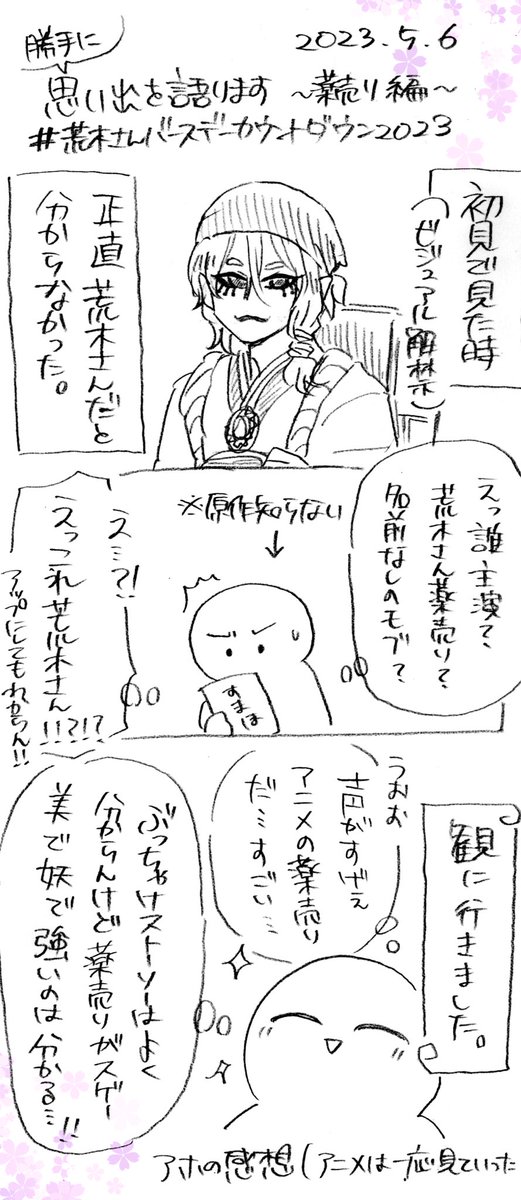 2023.5.6
勝手に
思い出を語ります ～薬売り編～
#荒木さんバースデーカウントダウン2023
初見で見た時
(ビジュアル解禁)
正直荒木さんだと
分からなかった。
えっ誰主演？
荒木さん薬売り？
名前なしのモブ？
※原作知らない
↓
すまほ
え…?!
えっこれ荒木さん!!?!?
アップにしてもわからん!!
観に行きました。
うおお
声がすげぇ
アニメの薬売り
だ…すごい…
ぶっちゃけストーリーはよく
分からんけど薬売りがスゲー
美で妖で強いのは分かる…!!
アホの感想(アニメは一応見ていった